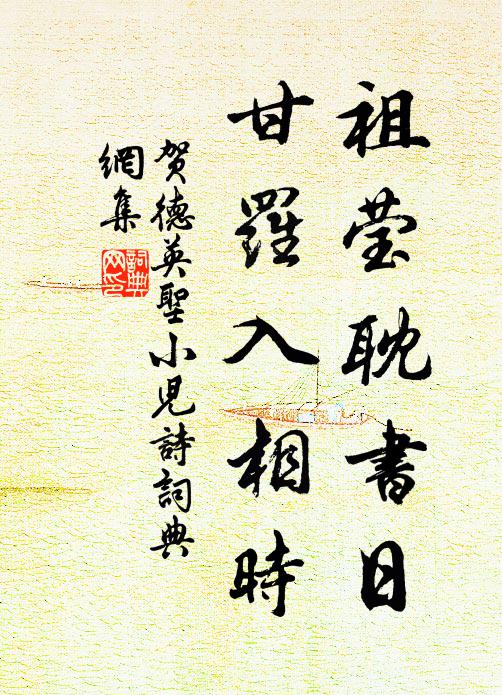 祖莹耽書日
甘羅入相時
賀德英聖小児詩詞典
網集
詞典
网印